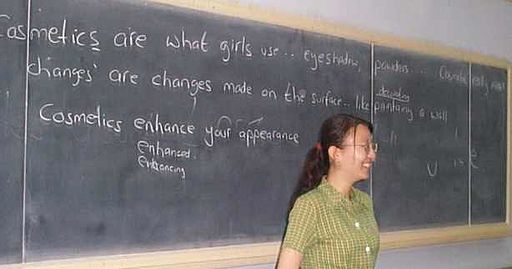 Cosmetics are what girls use.. eyeshadow, powders.... Cosmetic
changes' are changes made on the surface.. like painting a wall
decorating
Cosmetics enhance your appearance
enhanced.
enhancing